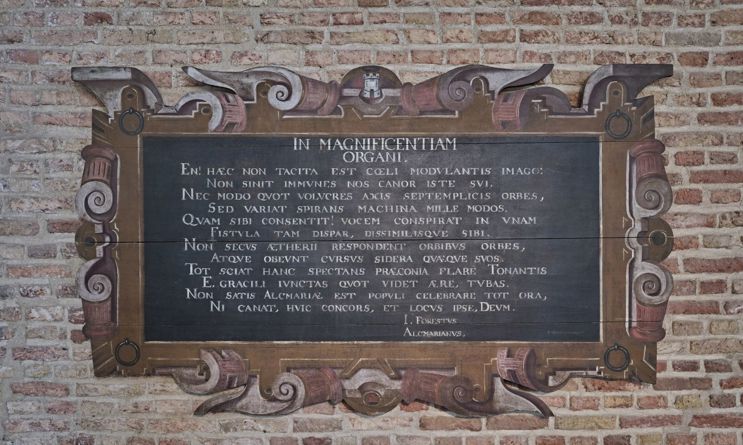 IN MAGNIFICENTIAM
ORGANI.
EN! HÆC NON TACITA EST CŒLI MODULANTIS IMAGO:
NON SINIT IMMVNES NOS CANOR ISTE SVI.
NEC MODO QVOT VOLVCRES AXIS SEPTEMPLICIS ORBES,
SED VARIAT SPIRANS MACHINA MILLE MODOS.
QVAM SIBI CONSENTIT! VOCEM CONSPIRAT IN VNAM
FISTVLA TAM DISPAR, DISSIMILISQVE SIBI.
NON SECVS ÆTHERII RESPONDENT ORBIBVS ORBES,
ATQVE OBEVNT CVRSVS SIDERA QVÆQVE SVOS.
TOT SCIAT HANC SPECTANS PRÆCONIA FLARE TONANTIS
E GRACILI IVNCTAS QVOT VIDET ÆRE, TVBAS.
NON SATIS ALCMARIÆ EST POPVLI CELEBRARE TOT ORA,
NI CANAT, HVIC CONCORS, ET LOCVS IPSE, DEVM.
I. FORESTVS
ALCMARIANVS.